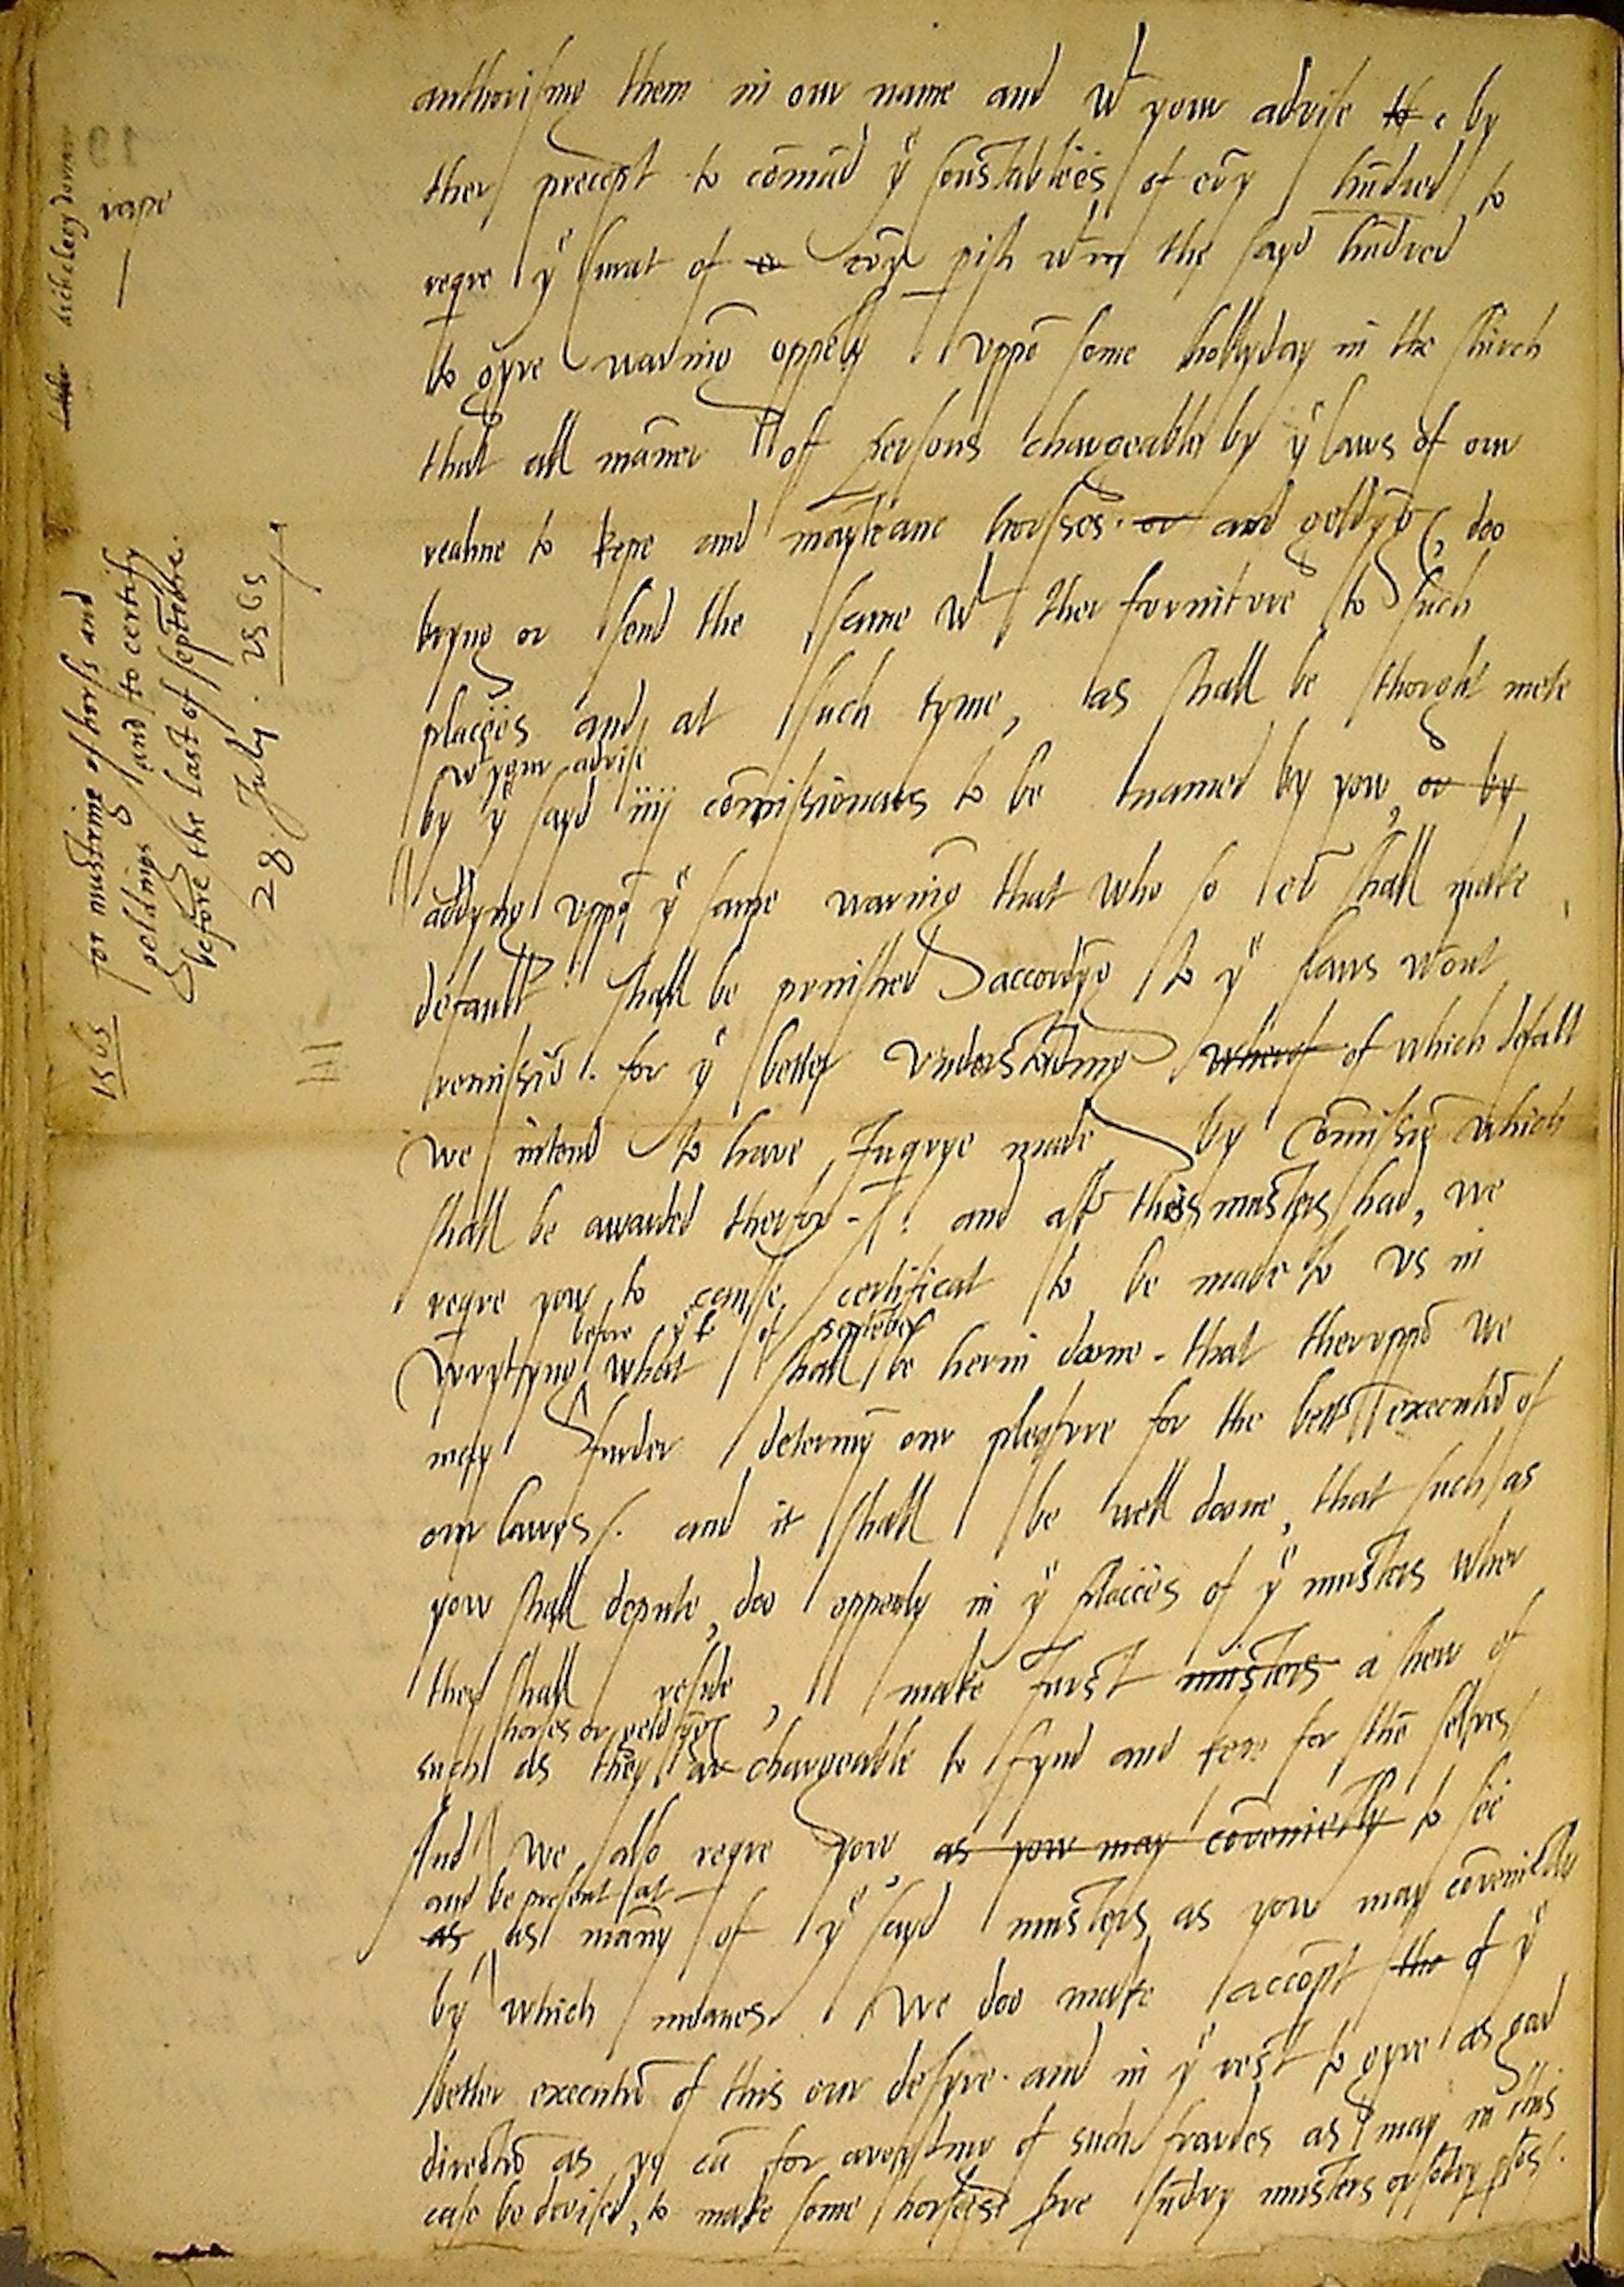 authorisyng them in our name and wt your advise to & by
ther precept to cōmād yͤ constablees of eūy hūdred to
reqre yͤ curat of e eūy pish wtin the sayd hūdred
to gyve warnīg oppēly uppō some hollyday in the church
that all māner of persons chargeable by yͤ laws of our
realme to kepe and mayteane horsses or and geldȳgs, doo
bryng or send the same wt ther furniture to such
placees and at such tyme, as shall be thought mete
wt your advise
by yͤ sayd iiij cōmissionars to be named by you, or by
addyng uppō yͤ same warnīg that who so eū shall make
default shall be punished accordȳg to yͤ laws wtout
remissiō. for yͤ better understādyng wherof of which default
we intend to have Inqrye made by Cōmissiō which
shall be awarded therfor. and aft thes musters had, we
reqre you to cause certificat to be made to us in
before yͤ of septēber
wrytyng what shall be herin doone. that theruppō we
may furder determȳ our pleasure for the bett executiō of
our lawes. and it shall be well doone, that such as
you shall depute, doo oppenly in yͤ placees of yͤ musters wher
they shall reside, make furst musters a shew of
horses or geldȳgs
such as they ar chargeable to fynd and kepe for thē selves
And we also reqre you as you may cōveniētly to see
and be present at
as as māny of yͤ sayd musters as you may cōveniētly
by which meanes we doo make accōpt the of yͤ
better executiō of this our desyre. and in yͤ rest to gyve as good
directiō as yͦ cā for avoydyng of such fraudes as may in this
case be devised, to make some horsees serve sūdry musters or sōdry psōs.
rape
1565
for mustring of horss and
geldings and to certify
before the last of septēbre.
28. July. 1565